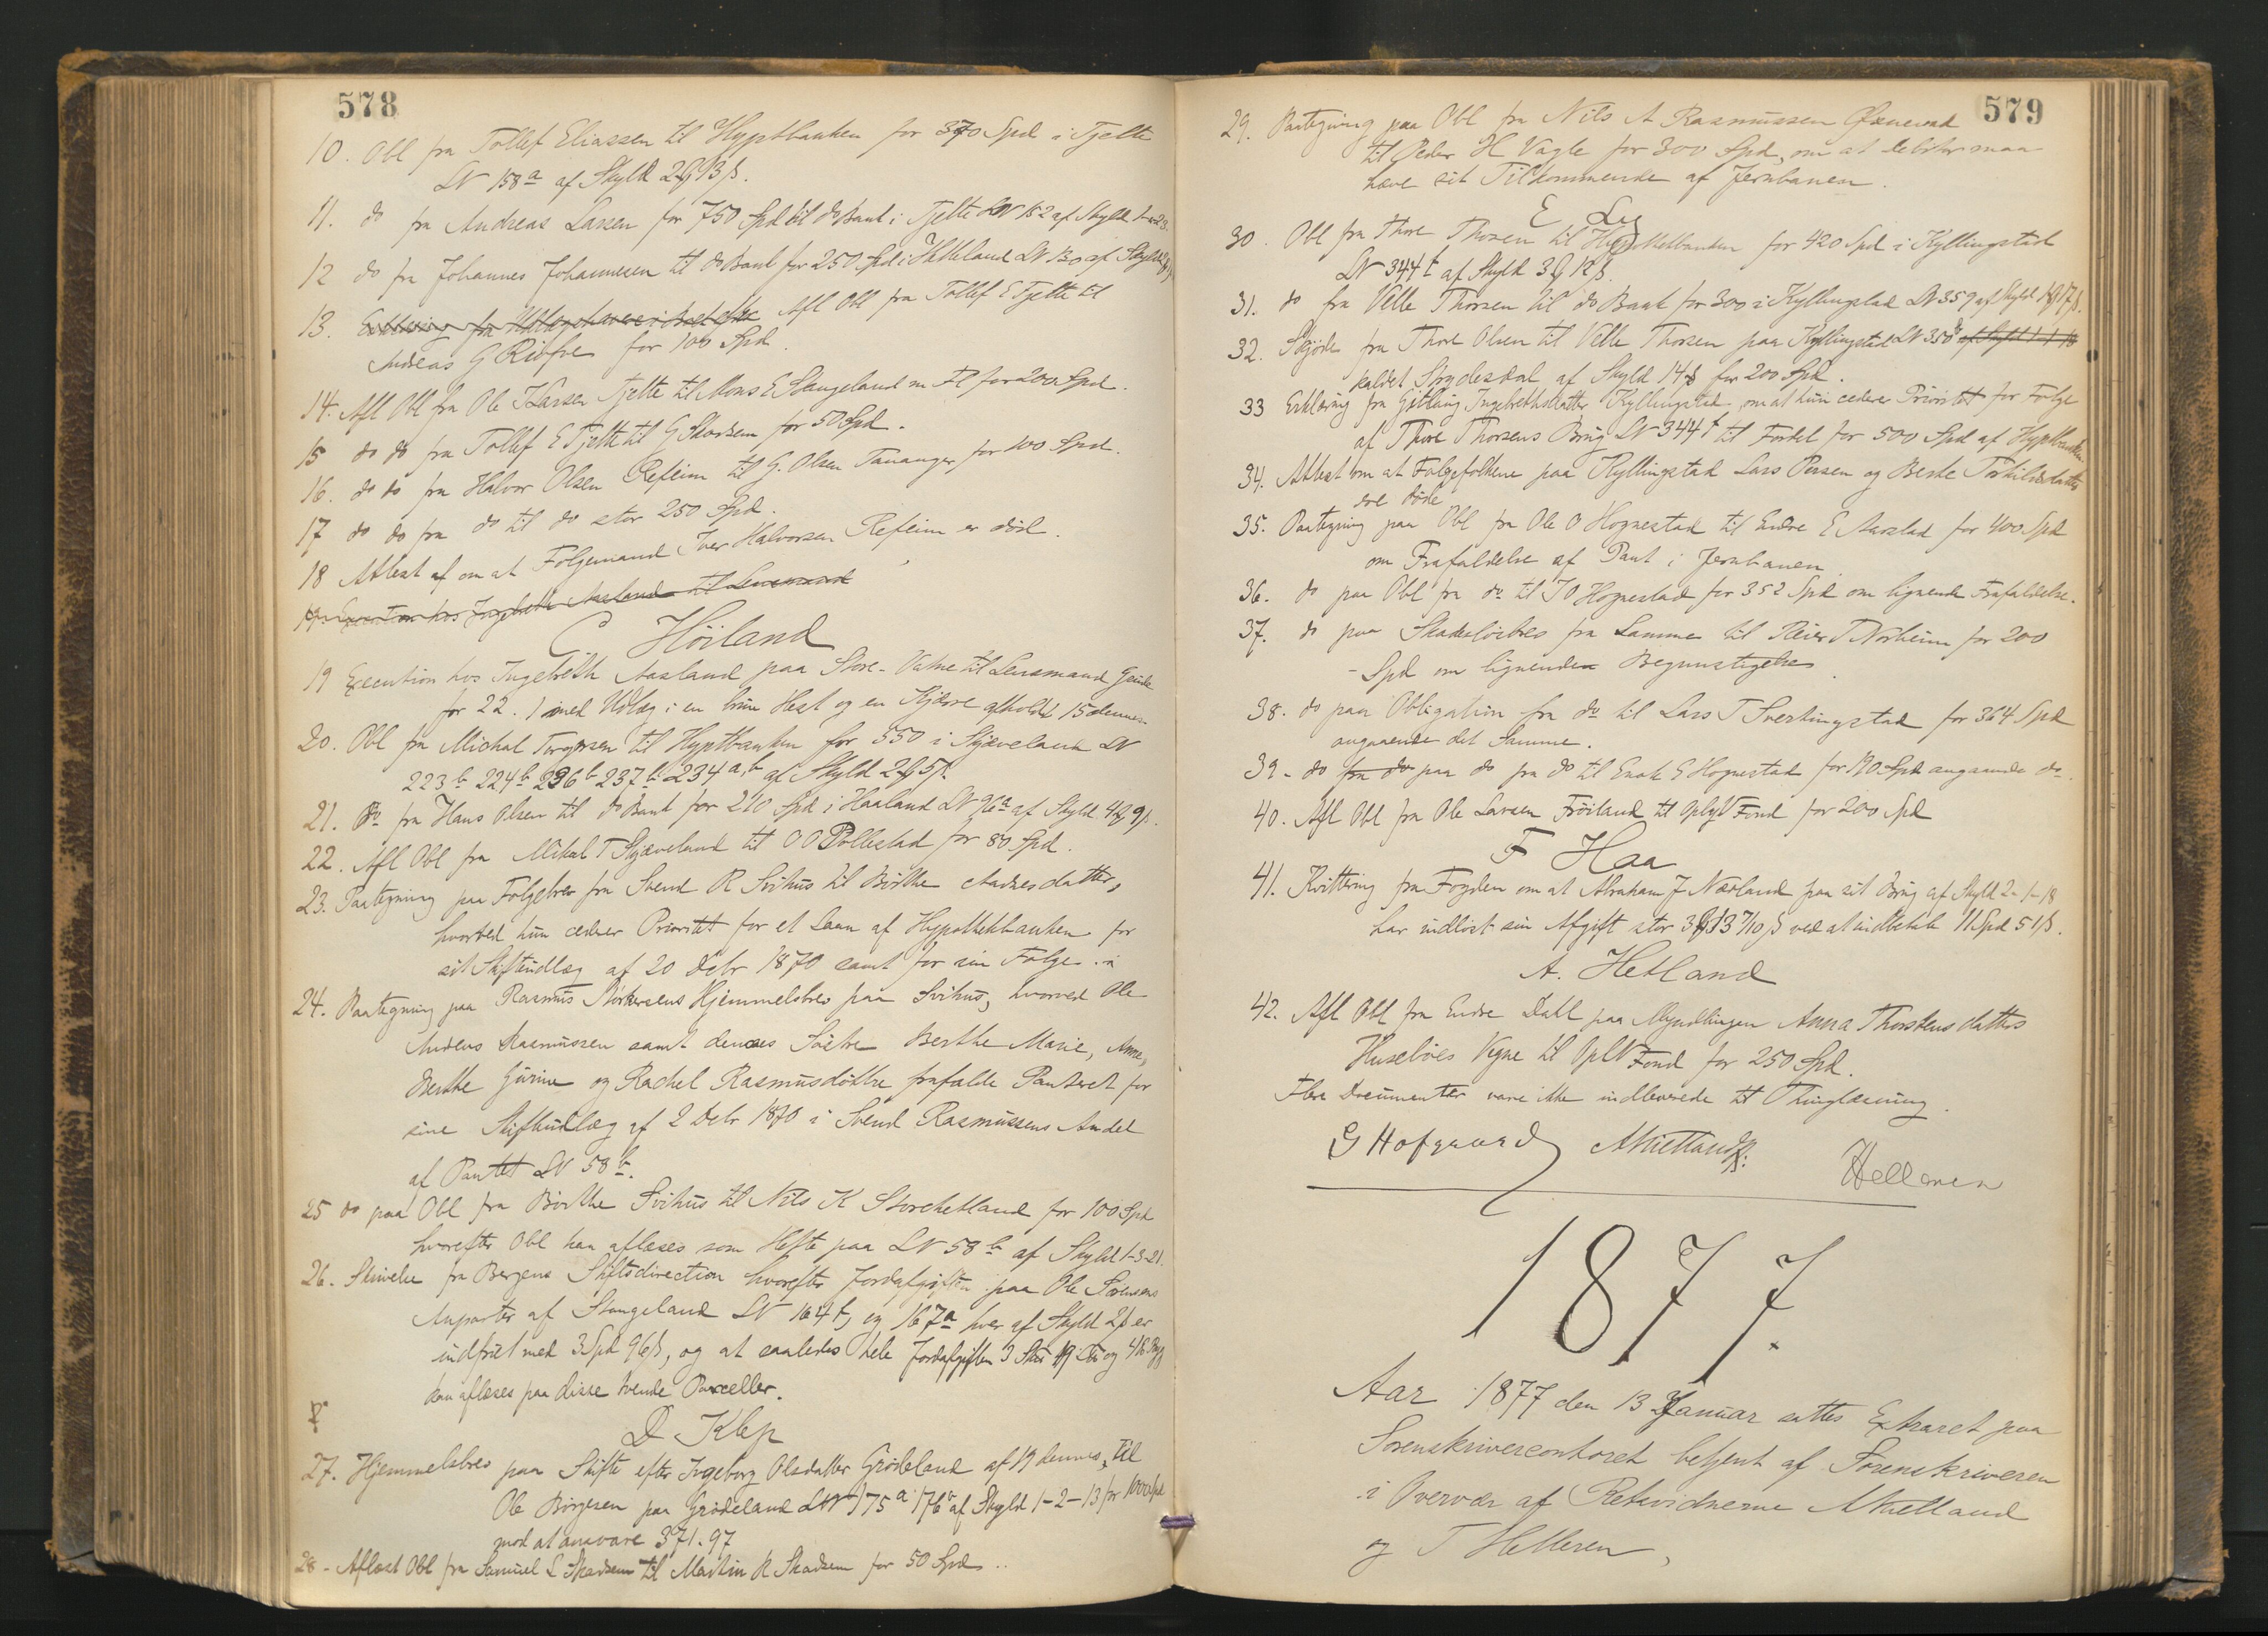 578
10. Obl fra Tollef Eliassen til Hypthbanken for 370 Spd i Tjelte
LN 158a af Skyld 2 ₰ 13 ß.
11. do fra Andreas Larsen for 750 Spd til do Bank i Tjelte LN 152 af Skyld 1-1-23.
12 do fra Johannes Johannesen til do Bank for 250 Spd i Hetleland LN 130 af Skyld
13. Afl Obl fra Tollef E Tjelte til
Andreas G Risfve for 100 Spd.
14. Afl Obl fra Ole TLarsen Tjelte til Mons E Stangeland m Fl for 200 Spd.
15 do do fra Tollef E Tjelte til G Skadsem for 50 Spd.
16. do do fra Halvor Olsen Refsum til G. Olsen Tananger for 100 Spd.
17 do do fra do til do stor 250 Spd.
18 Attest af om at Folgemand Iver Halvorsen Refsum er död.
19. Execution hos Ingebreth Aasland til Lensmand
C Höiland
19 Execution hos Ingebreth Aasland paa Store-Vatne til Lensmand Gjeude
for 22. 1 med Udlæg i en brun Hest og en Kjærre afholdt 15 dennes
20. Obl fra Michal Torgersen til Hypthbanken for 550 i Skjæveland LN
223b 224b 236b 237b 234a,b af Skyld 2 ₰ 5 ß.
21. Do fra Hans Olsen til do Bank for 210 Spd i Haaland LN 96a af Skyld 4 ₰ 9 ß.
22. Afl Obl fra Mikal T Skjæveland til O O Pollestad for 80 Spd.
23. Paategning paa Folgebrev fra Svend R Svihus til Börthe Aadnesdatter,
hvorved hun cederer Prioritet for et Laan af Hypothekbanken for
sit Skifteudlæg af 20 Debr 1870 samt for sin Folge i
24. Paategning paa Rasmus Storkersens Hjemmelsbrev paa Svihus, hvorved Ole
Andreas Rasmussen samt dennes Söstre Berthe Marie, Anne,
Berthe Gurine og Rachel Rasmusdöttre frafalde Panteret for
sine Skifteudlæg af 2 Debr 1870 i Svend Rasmussens Andel
af Pantet LN 58b.
25 do paa Obl fra Börthe Svihus til Nils K Storehetland for 100 Spd
hvorefter Obl kan aflæses som Hefte paa LN 58b af Skyld 1-3-21.
26. Skrivelse fra Bergens Stiftsdirection hvorefter Jordafgiften paa Ole Sörensens
Anparter af Stangeland LN 164b, og 167a hver af Skyld 2 ß er
indfriet med 3 Spd 96 ß, og at saaledes hele Jordafgiften
kan aflæses paa disse tvende Parceller.
D Klep
27. Hjemmelsbrev paa Skifte efter Ingeborg Olsdatter Grödeland af 19 dennes, til
Ole Börgesen paa Grödeland LN 175a 176b af Skyld 1-2-13 for 1000 Spd
mod at ansvare 371. 97
28 - Aflæst Obl fra Samuel L Skadsem til Martin R Skadsem for 50 Spd ..
579
29. Paategning paa Obl fra Nils A Rasmussen
til Peder H Vagle for 300 Spd, om at debitor maa
hæve sit Tilkommende af Jernbanen.
E Ly
30. Obl fra Thore Thorsen til Hypothekbanken for 420 Spd i Kyllingstad
LN 344b af Skyld 3 ₰ 12 ß.
31. do fra Velle Thorsen til do Bank for 300 i Kyllingstad LN 359 af Skyld 1 ₰ 17 ß.
32. Skjöde fra Thore Olsen til Velle Thorsen paa Kyllingstad LN 350b af Skyld 1-1-10
kaldet Strydesdal af Skyld 14 ß for 200 Spd.
33 Erklæring fra Gitlaug Ingebrethsdatter Kyllingstad, om at hun cederer Prioritet for Folge
af Thore Thorsens Brug LN 344b til Fordel for 500 Spd af Hypthbanken.
34. Attest om at Folgefolkene paa Kyllingstad Lars Persen og Berthe Torkildsdatter
ere döde
35. Paategning paa Obl fra Ole O Hognestad til Endre E Aarstad for 400 Spd
om Frafaldelse af Pant i Jernbanen.
36. do paa Obl fra do til J O Hognestad for 352 Spd om lignende Frafaldelse.
37. do paa Skadeslösbrev fra Samme til Reier T Norheim for 200
- Spd om lignenden Begunstigelse.
38. do paa Obligation fra do til Lars T Svertingstad for 364 Spd
angaaende det Samme.
39 - do fra do paa do fra do til Enok E Hognestad for 120 Spd angaaende do.
40. Afl Obl fra Ole Larsen Fröiland til Oplyst Fond for 200 Spd
F Haa
41. Kvittering fra Fogden om at Abraham J Nærland paa sit Brug af Skyld 2-1-18
har indlöst sin Afgift stor 3 ₰ 13 7/10 ß ved at indbetale 11 Spd 51 ß.
A. Hetland
42. Afl Obl fra Endre Dahl paa Myndlingen Anna Thorstensdatter
Huseböes Vegne til Oplt Fond for 250 Spd.
Flere Documenter vare ikke indleverede til Thinglæsning.
G Hofgaard AKielland Helleren
1877.
Aar 1877 den 13 Januar sattes Extraret paa
Sorenskrivercontoret betjent af Sorenskriveren
i Overvær af Retsvidnerne AKielland
og T Helleren,